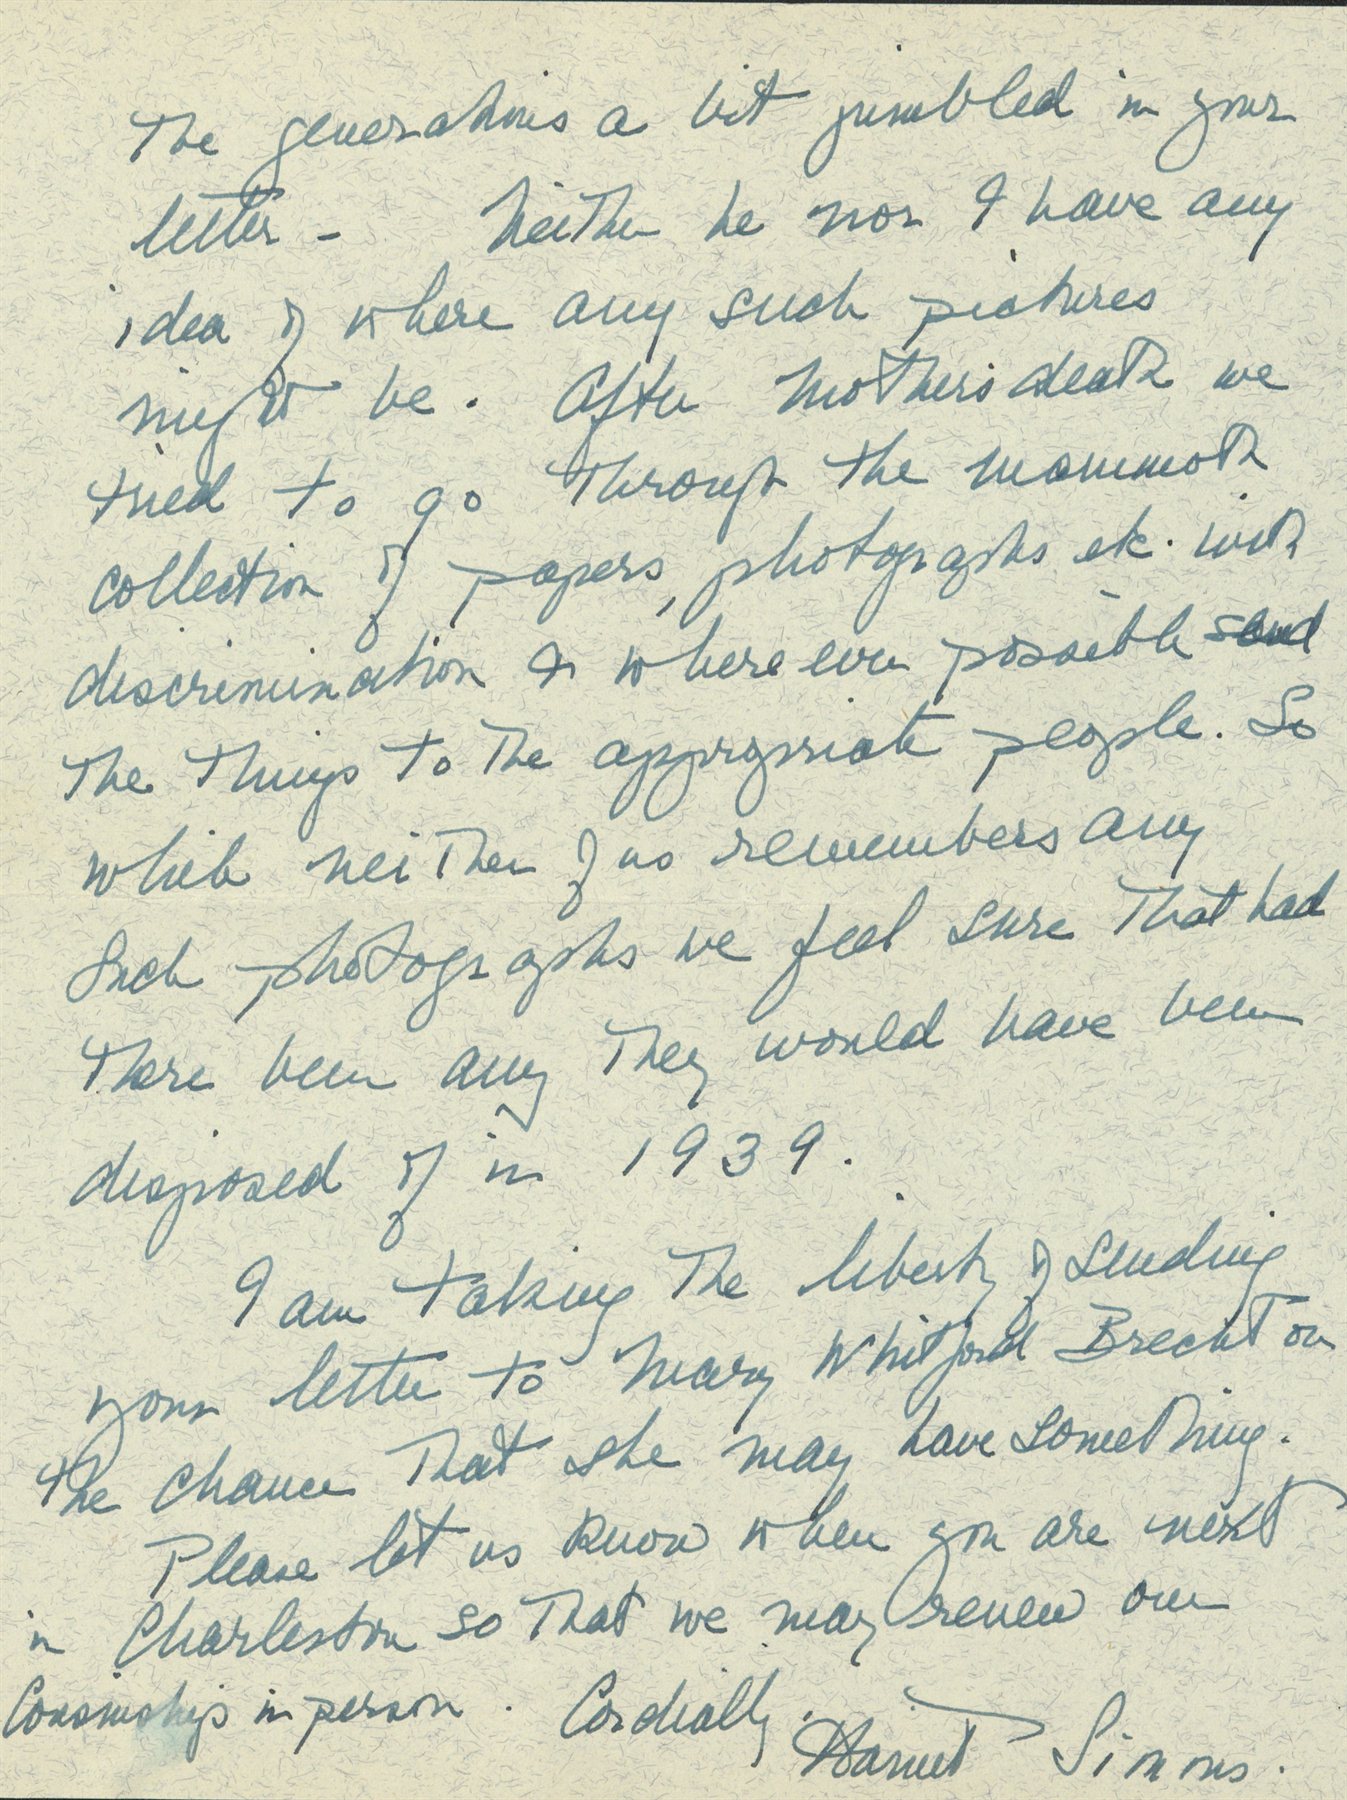 The generations a bit jumbled in your
letter - Neither he nor I have any
idea of where any such pictures
might be. After Mother's death we
tried to go through the mammoth
collection of papers, photographs etc. with
discrimination & where ever possible send
the things to the appropriate people. So
while neither of us remembers any
such photographs we feel sure that had
there been any they would have been
disposed of in 1939.
I am taking the liberty of sending
your letter to Mary Whitford Brecht on
the chance that she may have something.
Please let us know when you are next
in Charleston so that we may renew our
Cousinship in person. Cordially,
Harriet Simons.